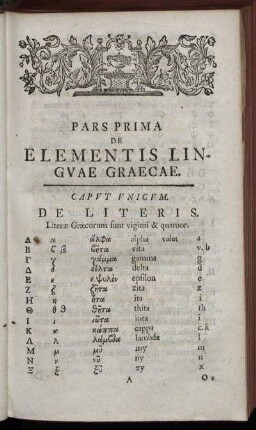 PARS PRIMA
DE
ELEMENTIS LIN-
GVAE GRAECAE.
CAPVT VNICVM.
DE LITERIS.
Literæ Græcorum sunt viginti & quatuor.
Α α ἄλφα alpha valet a
Β ϐ β βῆτα vita v. b
Γ γ γάμμα gamma g
Δ δ δέλτα delta d
Ε ε ἐ ψιλόν epsilon e
Ζ ζ ζῆτα zita z
Η η ἦτα ita i
Θ ϑ θ θῆτα thita th
Ι ι ἰῶτα iota i
Κ κ κάππα cappa c. k
Λ λ λάμβδα lambda l
Μ μ μῦ my m
Ν ν νῦ ny n
Ξ ξ ξῖ xy x
A O.